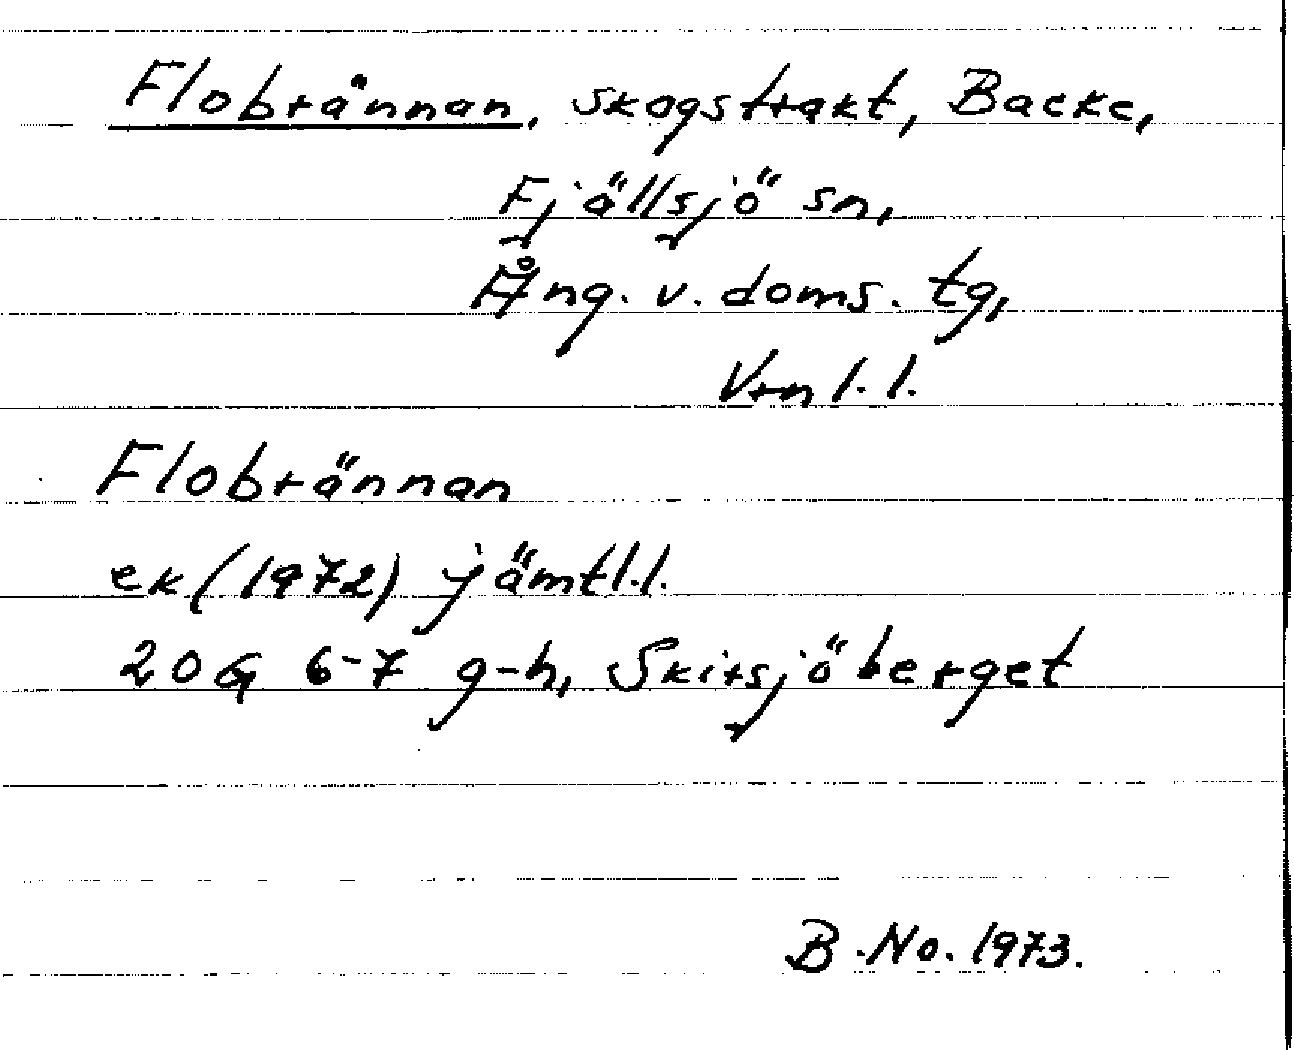 Flobrännan, skogstrakt, Backe,
Fjällsjö sn,
Ång. v. doms. tg,
Vrnl.l.
Flobrännan
ek (1972) jämtl.l.
20G 6-7 g-h, Skirsjöberget
B.No. 1973.